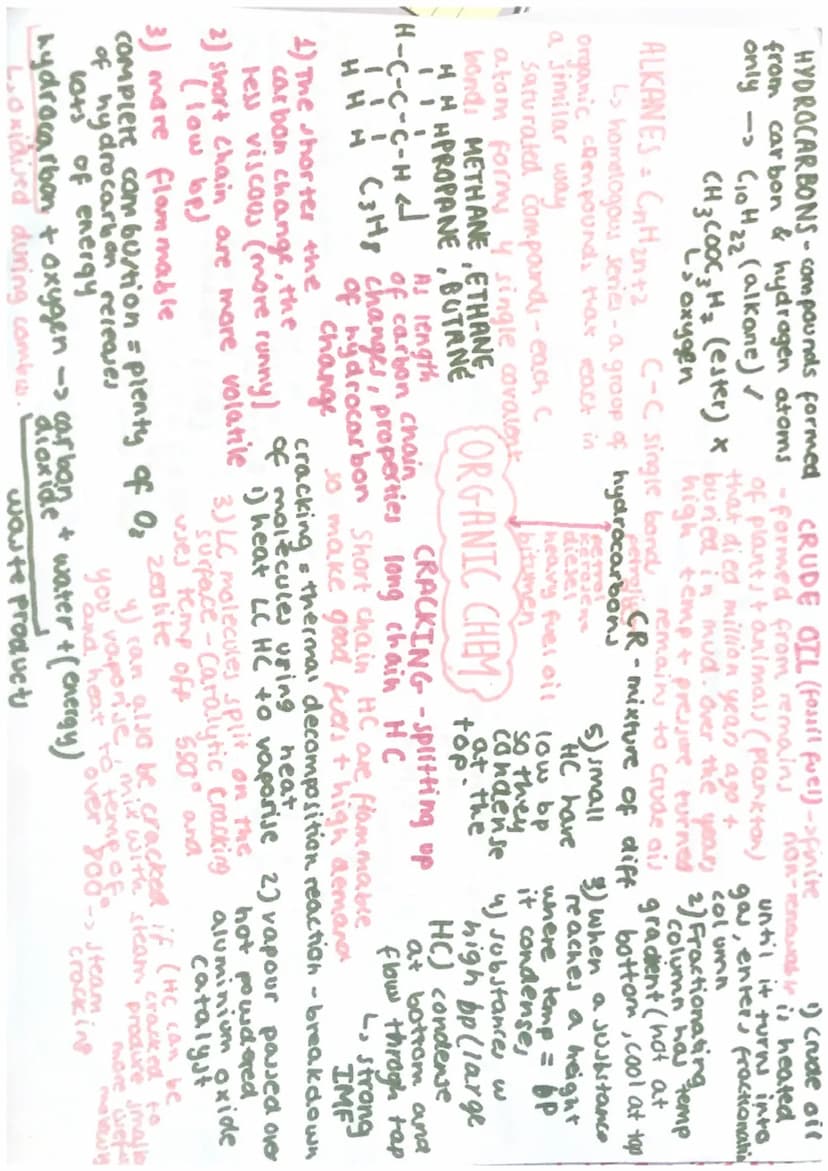 HYDROCARBONS - compounds formed
from carbon & hydrogen atoms
only → C10H22 (alkane) ✓
CH3COOC3H7 (ester) ×
↳ oxygen
ALKANES = CnH2n+2 C-C single bond
↳ homologous series - a group of
organic compounds that react in
a similar way
saturated compounds - each C
atom forms 4 single covalent
bonds METHANE, ETHANE
PROPANE, BUTANE
H H H
H-C-C-C-H ↲
H H H C3H8
As length
of carbon chain
changes, properties
of hydrocarbon
change
1) The shorter the
carbon change, the
less viscous (more runny)
2) short chain are more volatile
(low bp)
3) more flammable
complete combustion = plenty of O2
of hydrocarbon releases
lots of energy
hydrocarbon + oxygen → carbon + water + (energy)
dioxide
↳ oxidised during combus.
waste products
ORGANIC CHEM
hydrocarbons
petrol
kerosene
diesel
heavy fuel oil
bitumen
CRUDE OIL (fossil fuel) → finite
non-renewable
- formed from remains
of plants + animals (plankton)
that died million years ago +
buried in mud. over the years
high temp + pressure turned
remains to crude oil
CR - mixture of diff
1) crude oil
is heated
until it turns into
gas, enters fractionating
column
2) Fractionating
column has temp
gradient (hot at
bottom, cool at top
3) when a substance
reaches a height
where temp = bp
it condenses
4) substances w
high bp (large
HC) condense
at bottom and
flow through tap
↳ strong
IMF
5) small
HC have
low bp
so they
condense
at the
top.
CRACKING - splitting up
long chain HC
Short chain HC are flammable
so make good fuels + high demand
cracking = thermal decomposition reaction - breakdown
of molecules using heat
1) heat LC HC to vaporise
2) vapour passed over
hot powdered
aluminium oxide
catalyst
3) LC molecules split on the
surface - Catalytic cracking
uses temp off 550° and
zeolite
4) can also be cracked if
you vaporise, mix with steam
and heat to temp of
over 800° → steam
cracking
(HC can be
cracked to
produce smaller
more useful